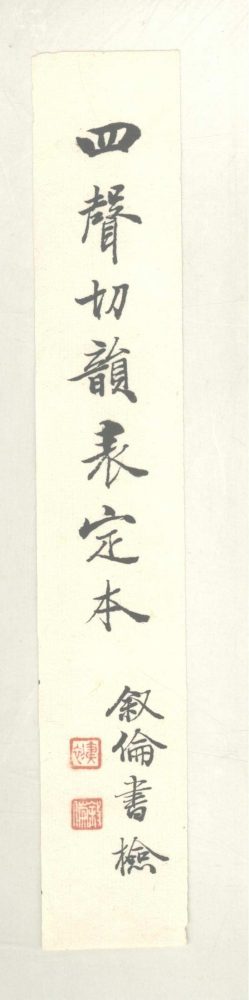 四聲切韻表定本
敘倫書檢